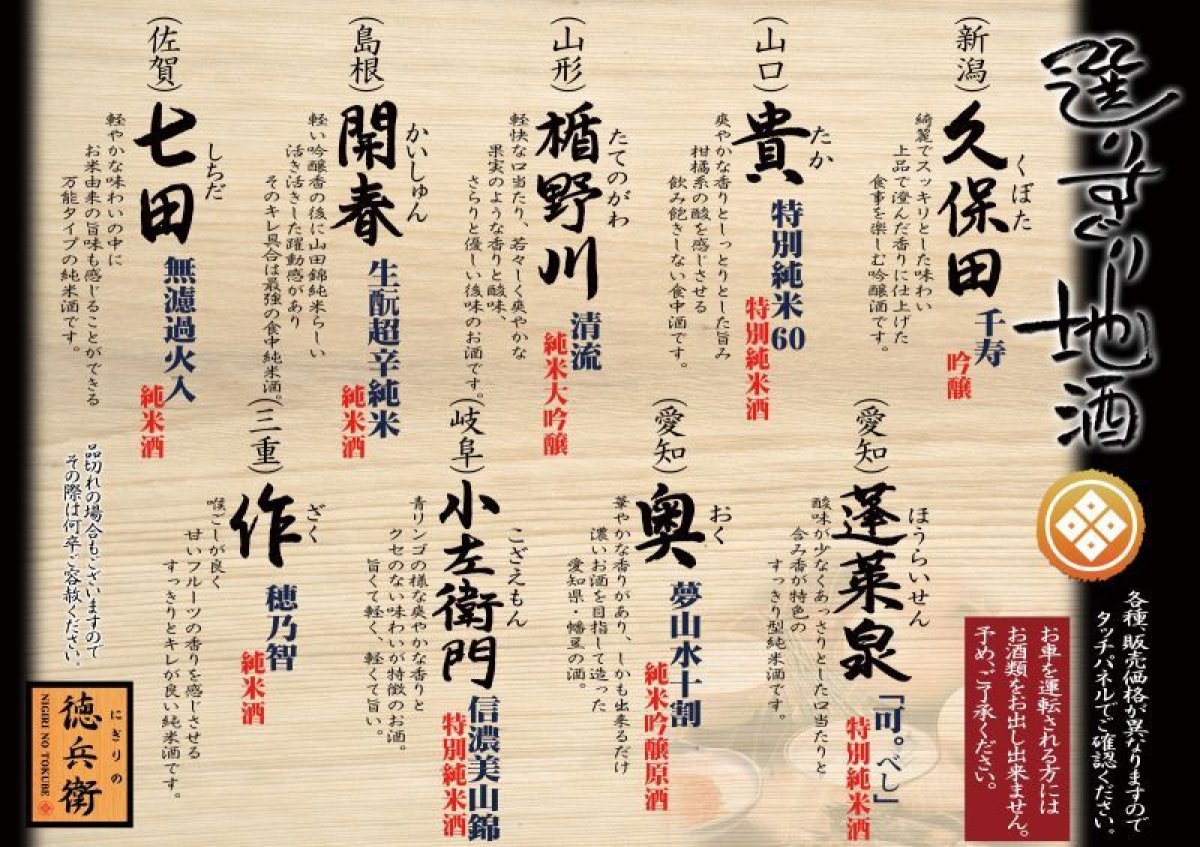 選りすぐり地酒
各種、販売価格が異なりますので
タッチパネルでご確認ください。
お車を運転される方には
お酒類をお出し出来ません。
予め、ご了承ください。
(新潟)
くぼた
久保田
千寿
吟醸
綺麗でスッキリとした味わい
上品で澄んだ香りに仕上げた
食事を楽しむ吟醸酒です。
(山口)
たか
貴
特別純米60
特別純米酒
爽やかな香りとしっとりとした旨み
柑橘系の酸を感じさせる
飲み飽きしない食中酒です。
(山形)
たてのがわ
楯野川
清流
純米大吟醸
軽快な口当たり、若々しく爽やかな
果実のような香りと酸味、
さらりと優しい後味のお酒です。
(島根)
かいしゅん
開春
生酛超辛純米
純米酒
軽い吟醸香の後に山田錦純米らしい
活き活きした躍動感があり
そのキレ具合は最強の食中純米酒。
(佐賀)
しちだ
七田
無濾過火入
純米酒
軽やかな味わいの中に
お米由来の旨味も感じることができる
万能タイプの純米酒です。
(愛知)
ほうらいせん
蓬莱泉
「可。べし」
特別純米酒
酸味が少なくあっさりとした口当たりと
含み香が特色の
すっきり型純米酒です。
(愛知)
おく
奥
夢山水十割
純米吟醸原酒
華やかな香りがあり、しかも出来るだけ
濃いお酒を目指して造った
愛知県・幡豆の酒。
(岐阜)
こざえもん
小左衛門
信濃美山錦
特別純米酒
青リンゴの様な爽やかな香りと
クセのない味わいが特徴のお酒。
旨くて軽く、軽くて旨い。
(三重)
ざく
作
穂乃智
純米酒
喉ごしが良く
甘いフルーツの香りを感じさせる
すっきりとキレが良い純米酒です。
品切れの場合もございますので
その際は何卒ご容赦ください。
にぎりの
徳兵衛
NIGIRI NO TOKUBE